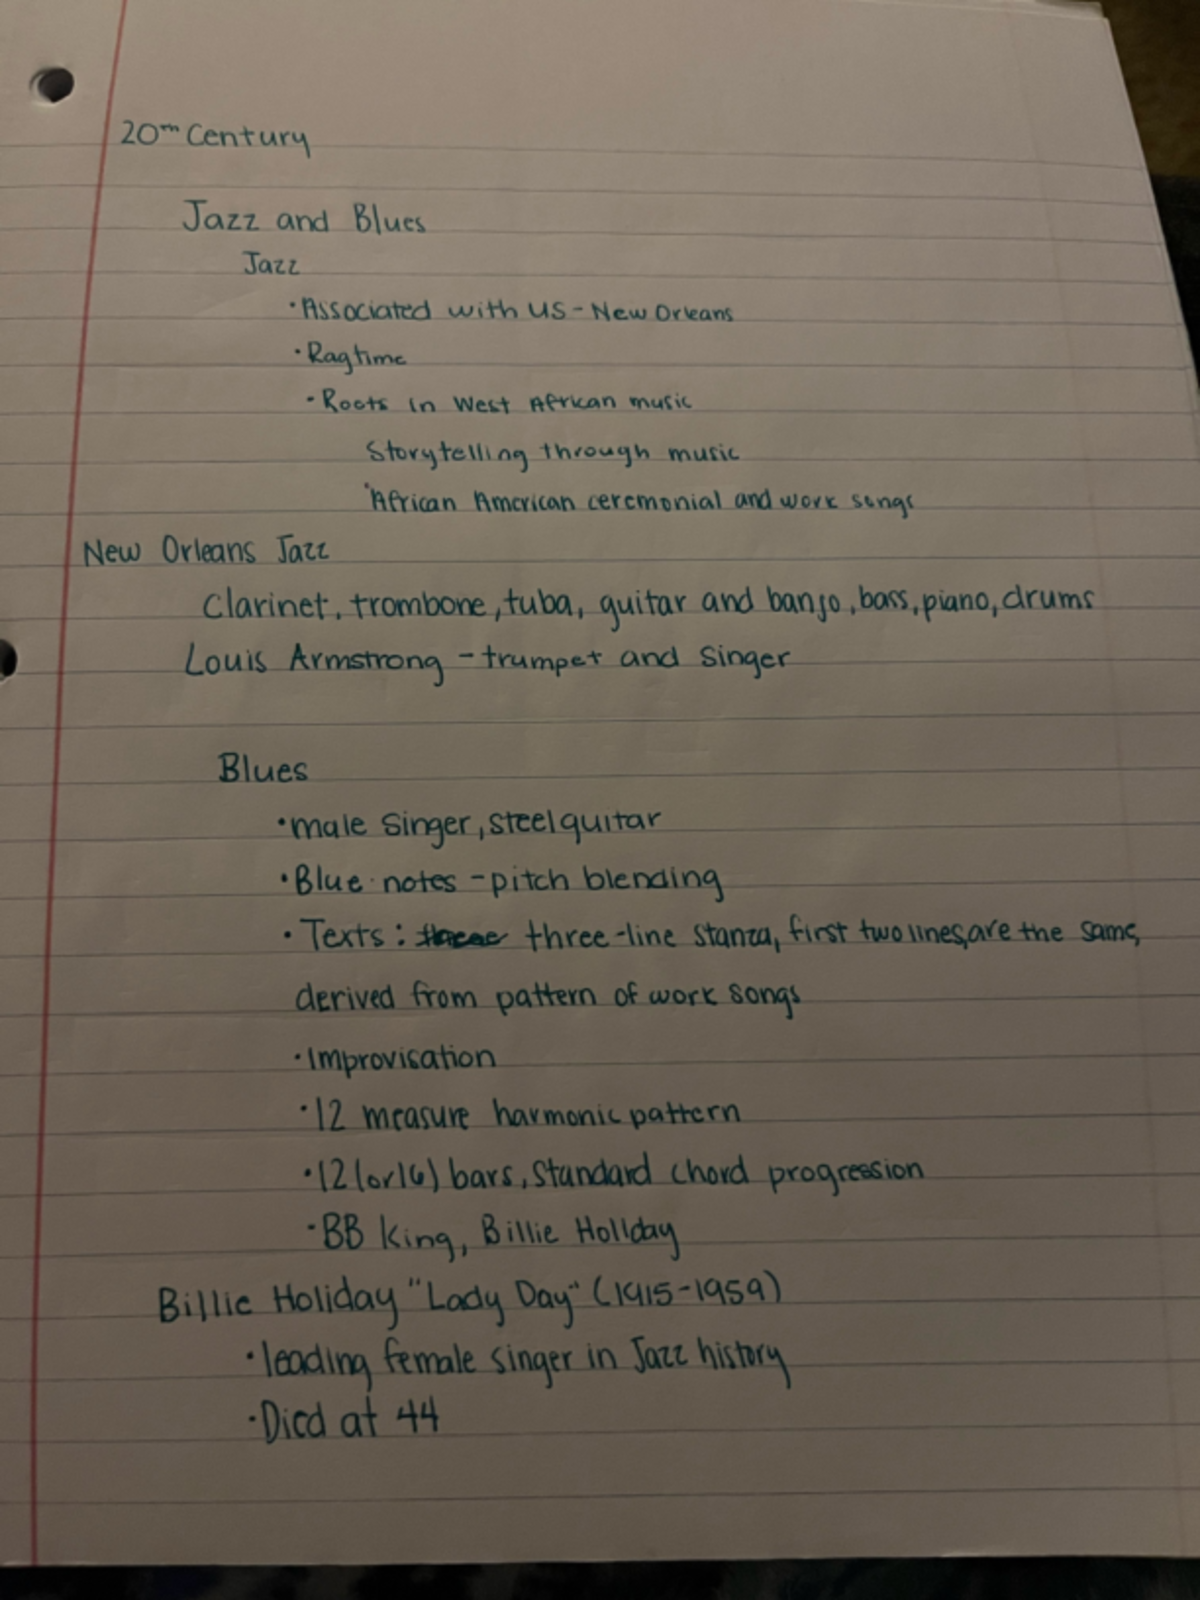 20th Century
Jazz and Blues
Jazz
• Associated with US - New Orleans
• Ragtime
• Roots in West African music
Storytelling through music
• African American ceremonial and work songs
New Orleans Jazz
Clarinet, trombone, tuba, guitar and banjo, bass, piano, drums
Louis Armstrong - trumpet and singer
Blues
• male singer, steel guitar
• Blue notes - pitch blending
• Texts: three-line stanza, first two lines, are the same,
derived from pattern of work songs
• Improvisation
• 12 measure harmonic pattern
• 12 (or 16) bars, standard chord progression
• BB King, Billie Holiday
Billie Holiday "Lady Day" (1915-1959)
• leading female singer in Jazz history
• Died at 44